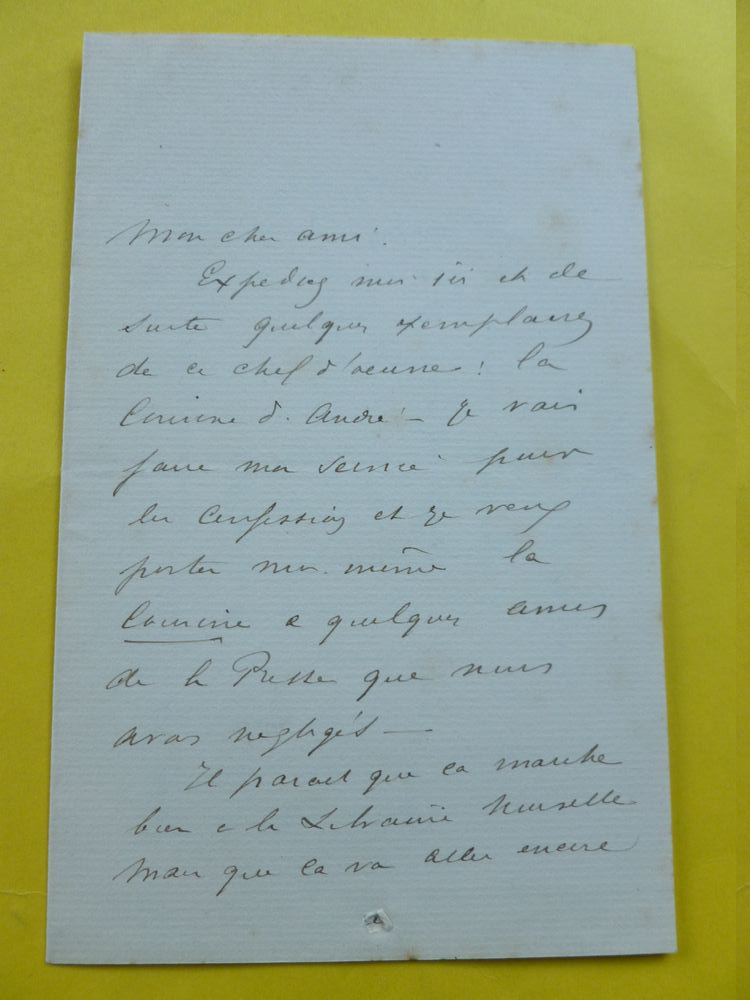 Mon cher ami.
Expediez moi ici et de
suite quelques exemplaires
de ce chef d'oeuvre! la
Cousine d. André — Je vais
faire mon service pour
les Confessions et je veux
porter moi-même la
Cousine a quelques amis
de la Presse que nous
avons negligés —
Il parait que ca marche
bien a la Librairie Nouvelle
Mais que ca va aller encore